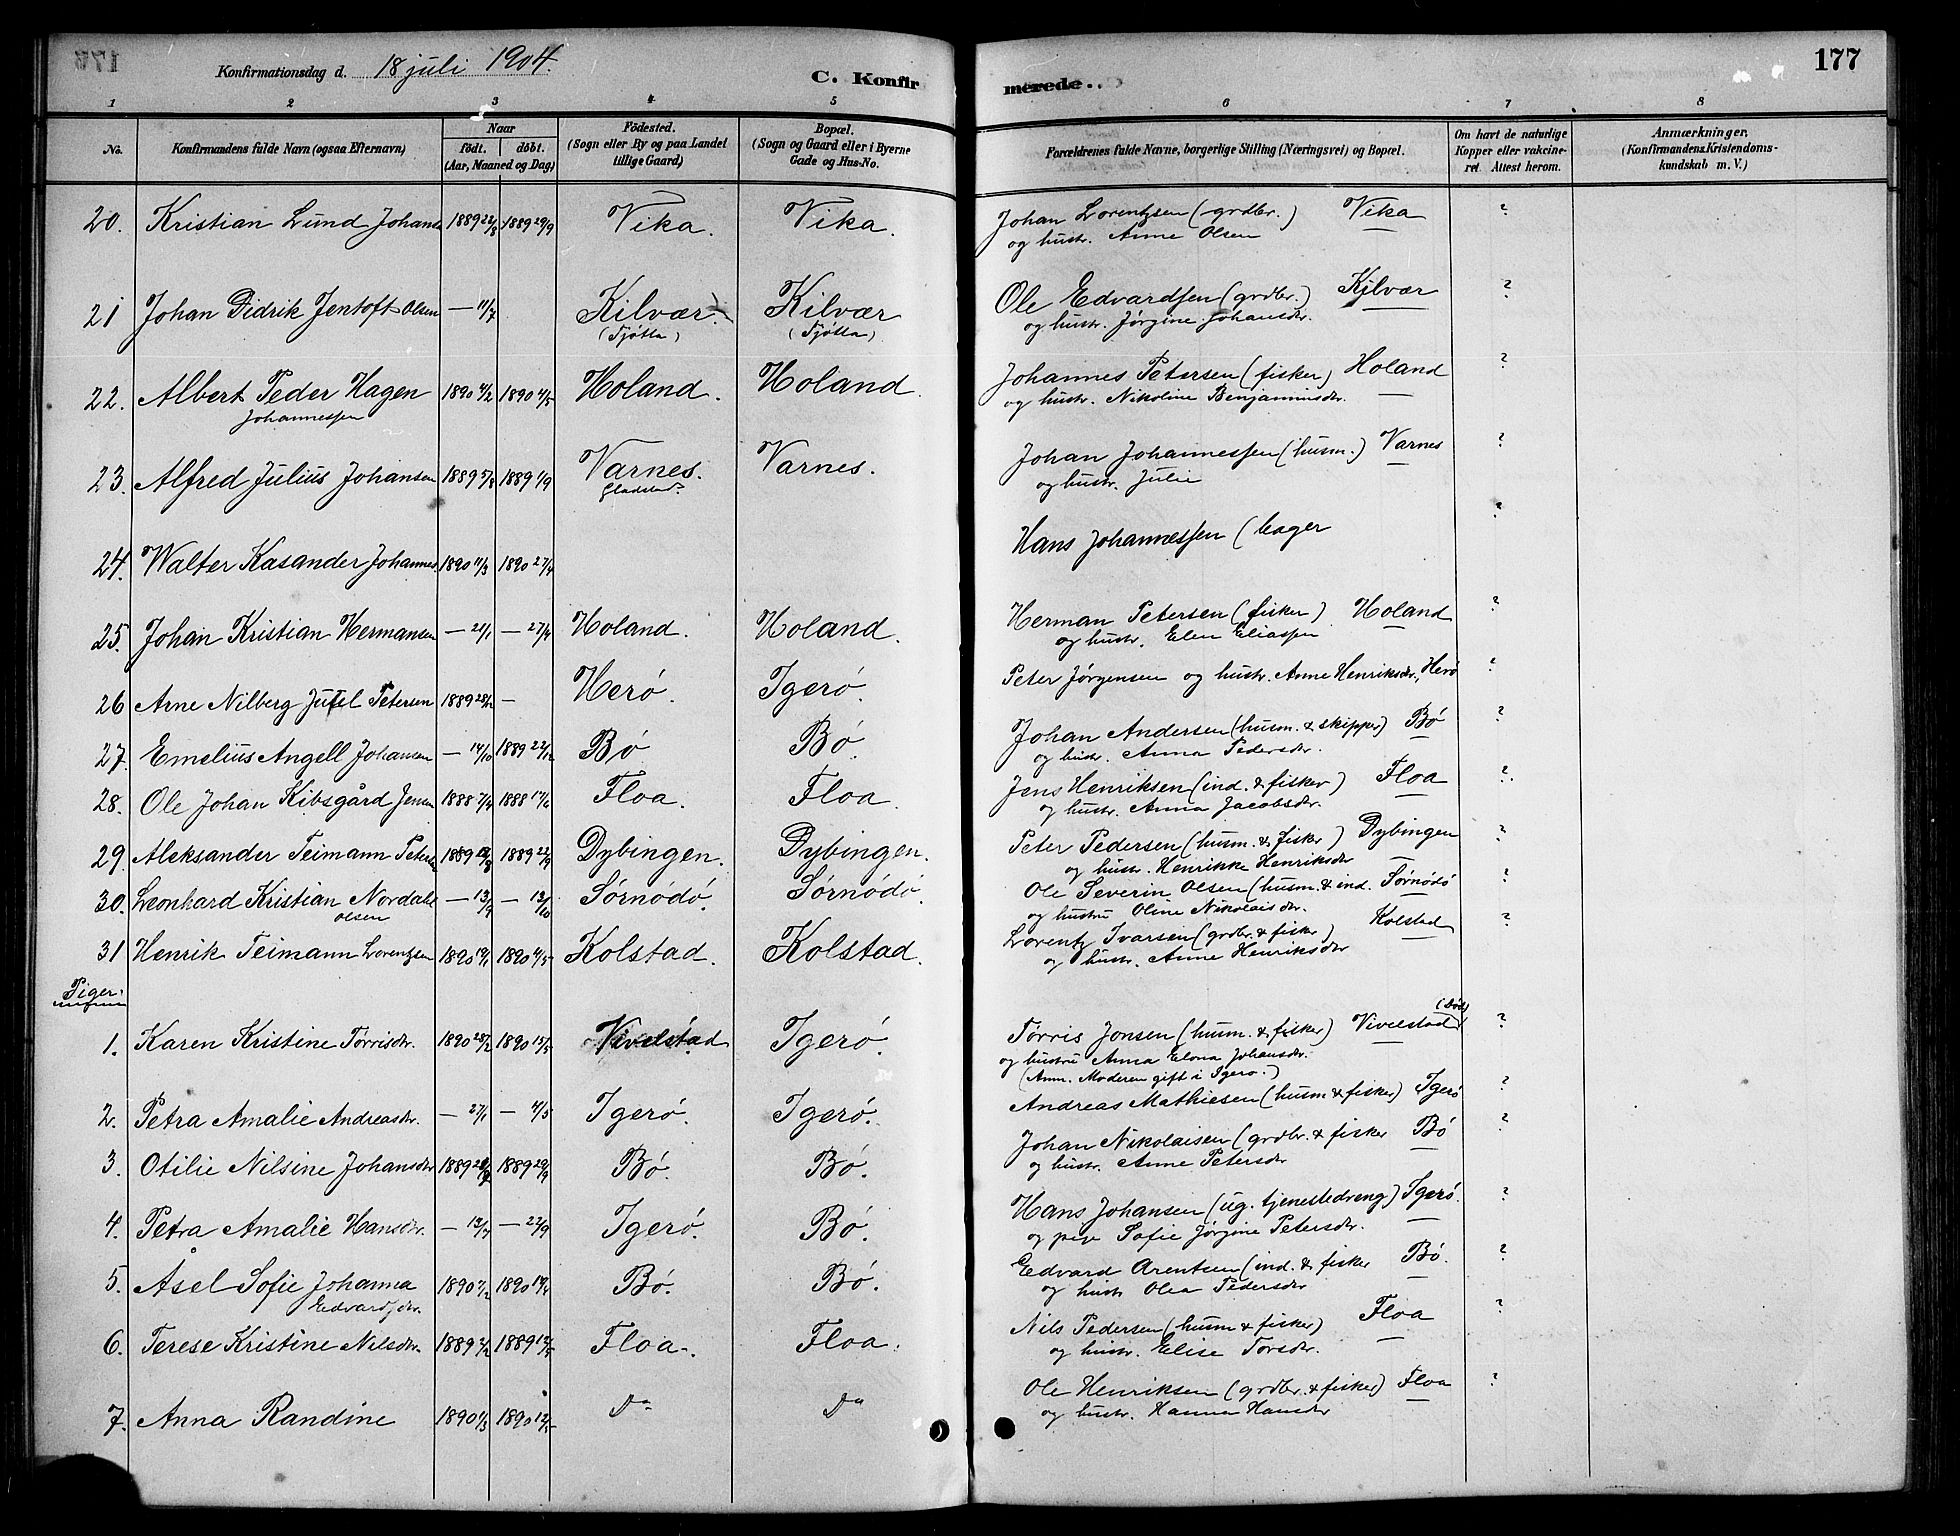 Konfirmationsdag d. 18 juli 1904. C. Konfirmerede. 177
1 2 3 4 5 6 7 8
No. Konfirmandens fulde Navn (ogsaa Efternavn) Naar født. døbt. (Aar, Maaned og Dag) Fødested. (Sogn eller By og paa Landet tillige Gaard) Bopæl. (Sogn og Gaard eller i Byerne Gade og Hus-No. Forældrenes fulde Navne, borgerlige Stilling (Næringsvei) og Bopæl. Om havt de naturlige Kopper eller vakcineret. Attest herom. Anmærkninger. (Konfirmandens Kristendomskundskab m. V.)
20. Kristian Lund Johans 1889 22/8 1889 29/9 Vika. Vika. Johan Lorentzsen (grdbr.) Vika ?
og hustr. Anne Olsen
21 Johan Didrik Jentoft Olsen — 11/7 Kilvær. Kilvær Ole Edvardsen (grdbr.) Kilvær ?
(Tjøtta) (Tjøtta) og hustr. Jørgine Johansdr.
22. Albert Peder Hagen 1890 4/2 1890 4/5 Holand. Holand. Johannes Petersen (fisker) Holand ?
Johannessen og hustr. Nikoline Benjaminsdr.
23. Alfred Julius Johansen 1889 5/8 1889 1/9 Varnes. Varnes. Johan Johannessen (husm.) Varnes ?
Gladstad. og hustr. Julie
24. Walter Kasander Johannes 1890 11/3 1890 27/4 Hans Johannessen (bager ?
25. Johan Kristian Hermansen — 21/1 — 27/4 Holand. Holand. Herman Petersen (fisker) Holand ?
og hustr. Elen Eliassen
26 Arne Nilberg Jutel Petersen 1889 28/12 — Herø. Igerø. Peter Jørgensen og hustr. Anne Henriksdr., Herø ?
27. Emelius Angell Johansen — 14/10 1889 22/12 Bø Bø. Johan Andersen (husm. & skipper) Bø ?
og hustr. Anna Pedersdr.
28. Ole Johan Kibsgård Jensen 1888 7/4 1888 17/6 Floa. Floa. Jens Henriksen (ind. & fisker) Floa ?
og hustr. Anna Jacobsdr.
29. Aleksander Teimann Peters 1889 1889 22/9 Dybingen. Dybingen. Peter Pedersen (husm. & fisker) Dybingen ?
og hustr. Henrikke Henriksdr
30. Leonhard Kristian Nordahl — 13/9 — 13/10 Sørnødø. Sørnødø. Ole Severin Olsen (husm. & ind. Sørnødø ?
Olsen og hustru Oline Nikolaisdr.
31 Henrik Teimann Lorentzsen 1890 19/1 1890 4/5 Kolstad. Kolstad. Lorentz Ivarsen (grdbr. & fisker) Kolstad ?
og hustr. Anne Henriksdr
Piger.
1. Karen Kristine Tørrisdr. 1890 28/2 1890 15/5 Vivelstad Igerø. Tørris Jonsen (husm. & fisker) Vivelstad (død) ?
og hustru Anna Elona Johansdr.
(Anm. Moderen gift i Igerø.)
2. Petra Amalie Andreasdr. — 27/1 — 4/5 Igerø. Igerø. Andreas Mathiesen (husm & fisker) Igerø ?
3. Otilie Nilsine Johansdr 1889 1889 29/9 Bø. Bø. Johan Nikolaisen (grdbr. & fisker Bø ?
og hustr. Anne Petersdr
4. Petra Amalie Hansdr. — 12/7 — 22/9 Igerø. Bø. Hans Johansen (ug. tjenestedreng) Igerø. ?
og pige Sofie Jørgine Petersdr.
5. Åsel Sofie Johanna 1890 7/2 1890 19/4 Bø. Bø. Edvard Arentsen (ind. & fisker Bø. ?
Edvardsdr. og hustr Olea Pedersdr
6. Terese Kristine Nilsdr. 1889 2/2 1889 12/5 Floa. Floa. Nils Pedersen (husm & fisker) Floa ?
og hustr. Elise Torsdr.
7. Anna Randine 1890 1/3 1890 12/5 Do Do Ole Henriksen (grdbr. & fisker) Floa ?
og hustr. Hanna Hansdr